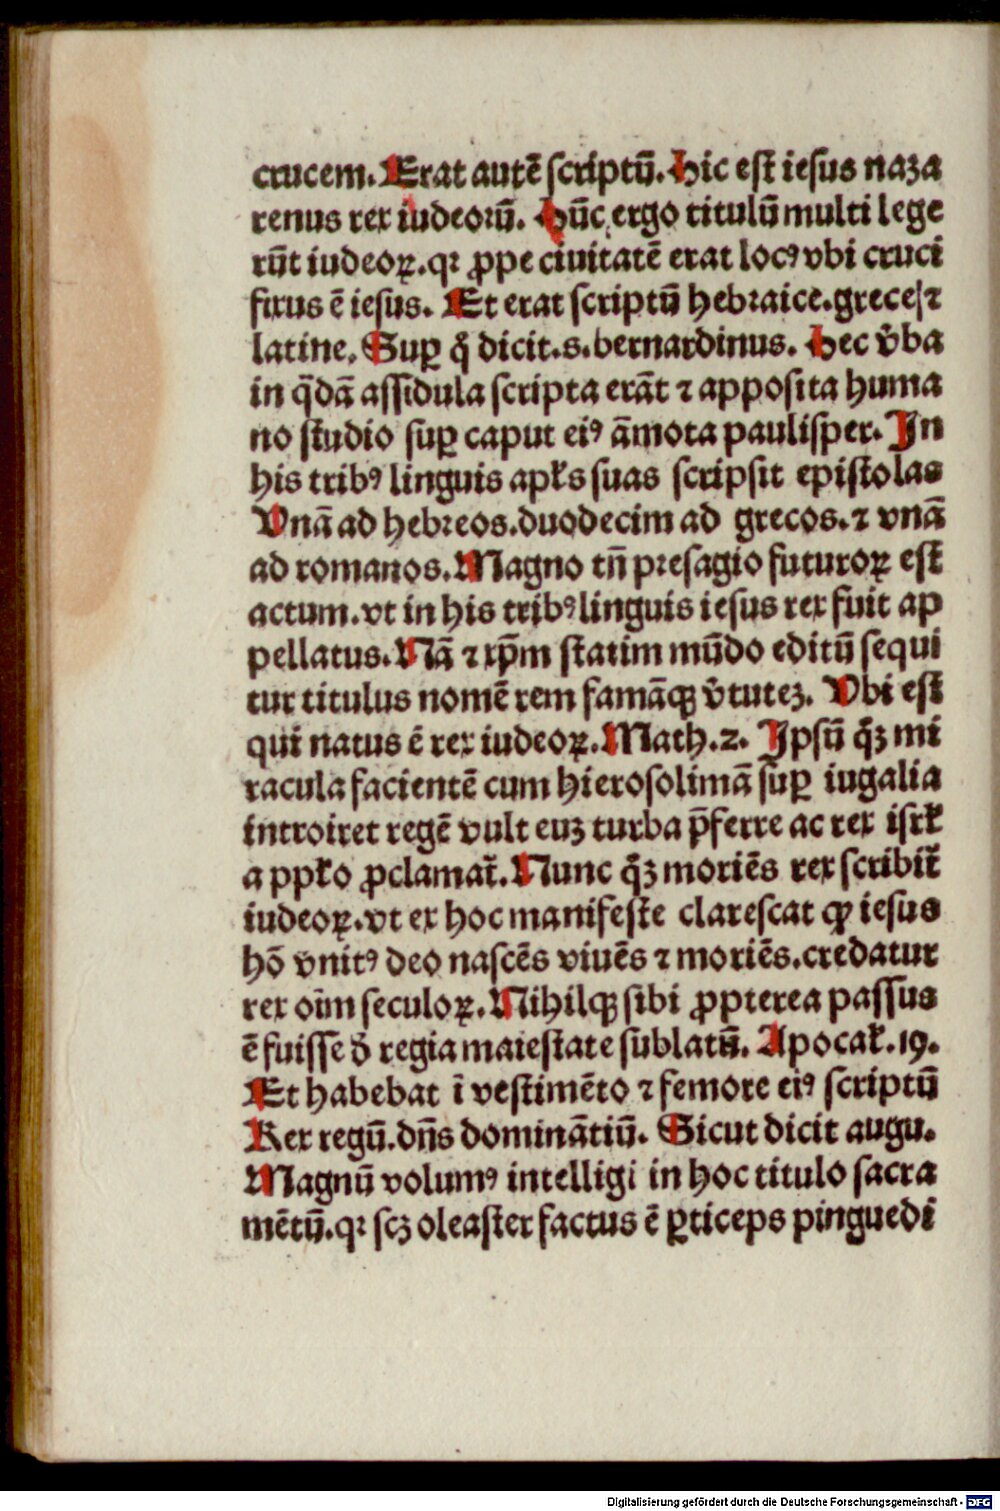 crucem. Erat autē scriptū. Hic est iesus naza
renus rex iudeorū. Hūc ergo titulū multi lege
rūt iudeoꝝ. qꝛ ꝓpe ciuitatē erat locꝰ vbi cruci
fixus ē iesus. Et erat scriptū hebraice. grece ⁊
latine. Suꝑ q̄ dicit. s. bernardinus. Hec v̄ba
in q̄dā assidula scripta erāt ⁊ apposita huma
no studio suꝑ caput eiꝰ āmota paulisper. In
his tribꝰ linguis apl̄s suas scripsit epistolas
Vnā ad hebreos. duodecim ad grecos. ⁊ vnā
ad romanos. Magno tn̄ presagio futuroꝝ est
actum. vt in his tribꝰ linguis iesus rex fuit ap
pellatus. Nā ⁊ xp̄m statim mūdo editū sequi
tur titulus nomē rem famāqꝫ v̄tutez. Vbi est
qui natus ē rex iudeoꝝ. Math. 2. Ipsū q̄ꝫ mi
racula facientē cum hierosolimā suꝑ iugalia
introiret regē vult euꝫ turba p̄ferre ac rex isrl̄
a ppl̄o ꝓclamat̄. Nunc q̄ꝫ moriēs rex scribit̄
iudeoꝝ. vt ex hoc manifeste clarescat ꝙ iesus
hō vnitꝰ deo nascēs viuēs ⁊ moriēs. credatur
rex oīm seculoꝝ. Nihilqꝫ sibi ꝓpterea passus
ē fuisse d̄ regia maiestate sublatū. Apocal̄. 19.
Et habebat ī vestimēto ⁊ femore eiꝰ scriptū
Rex regū. dn̄s domināntiū. Sicut dicit augu.
Magnū volumꝰ intelligi in hoc titulo sacra
mētū. qꝛ scꝫ oleaster factus ē ꝑticeps pinguedi
Digitalisierung gefördert durch die Deutsche Forschungsgemeinschaft - DFG